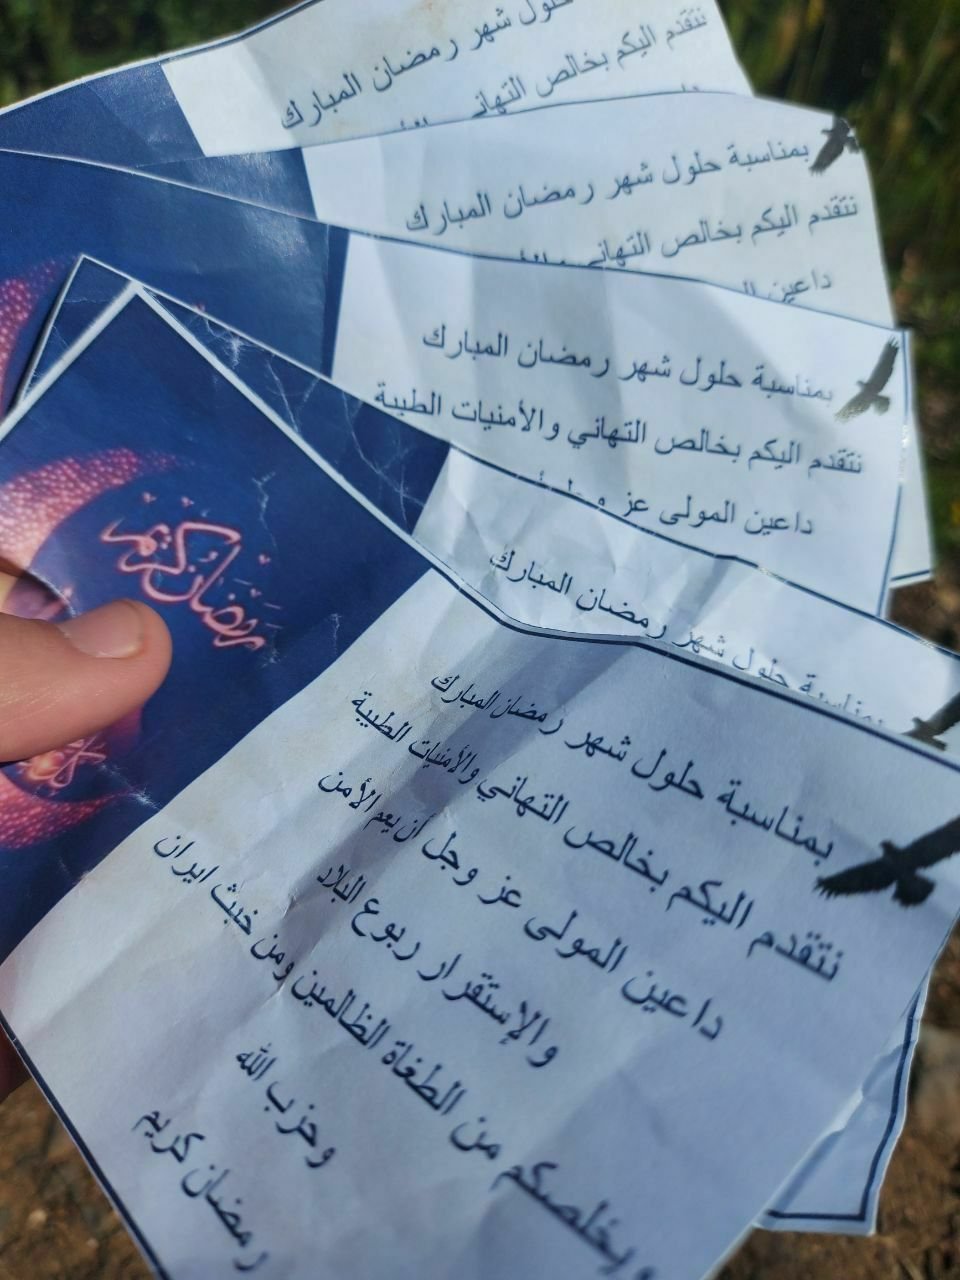 حلول شهر رمضان المبارك
نتقدم اليكم بخالص التهاني
بمناسبة حلول شهر رمضان المبارك
نتقدم اليكم بخالص التهاني والأ
داعين
بمناسبة حلول شهر رمضان المبارك
نتقدم اليكم بخالص التهاني والأمنيات الطيبة
داعين المولى عز وجل أن
بمناسبة حلول شهر رمضان المبارك
رمضان كريم
بمناسبة حلول شهر رمضان المبارك
نتقدم اليكم بخالص التهاني والأمنيات الطيبة
داعين المولى عز وجل أن يعم الأمن
والإستقرار ربوع البلاد
ويخلصكم من الطغاة الظالمين ومن خبث ايران
وحزب الله
رمضان كريم